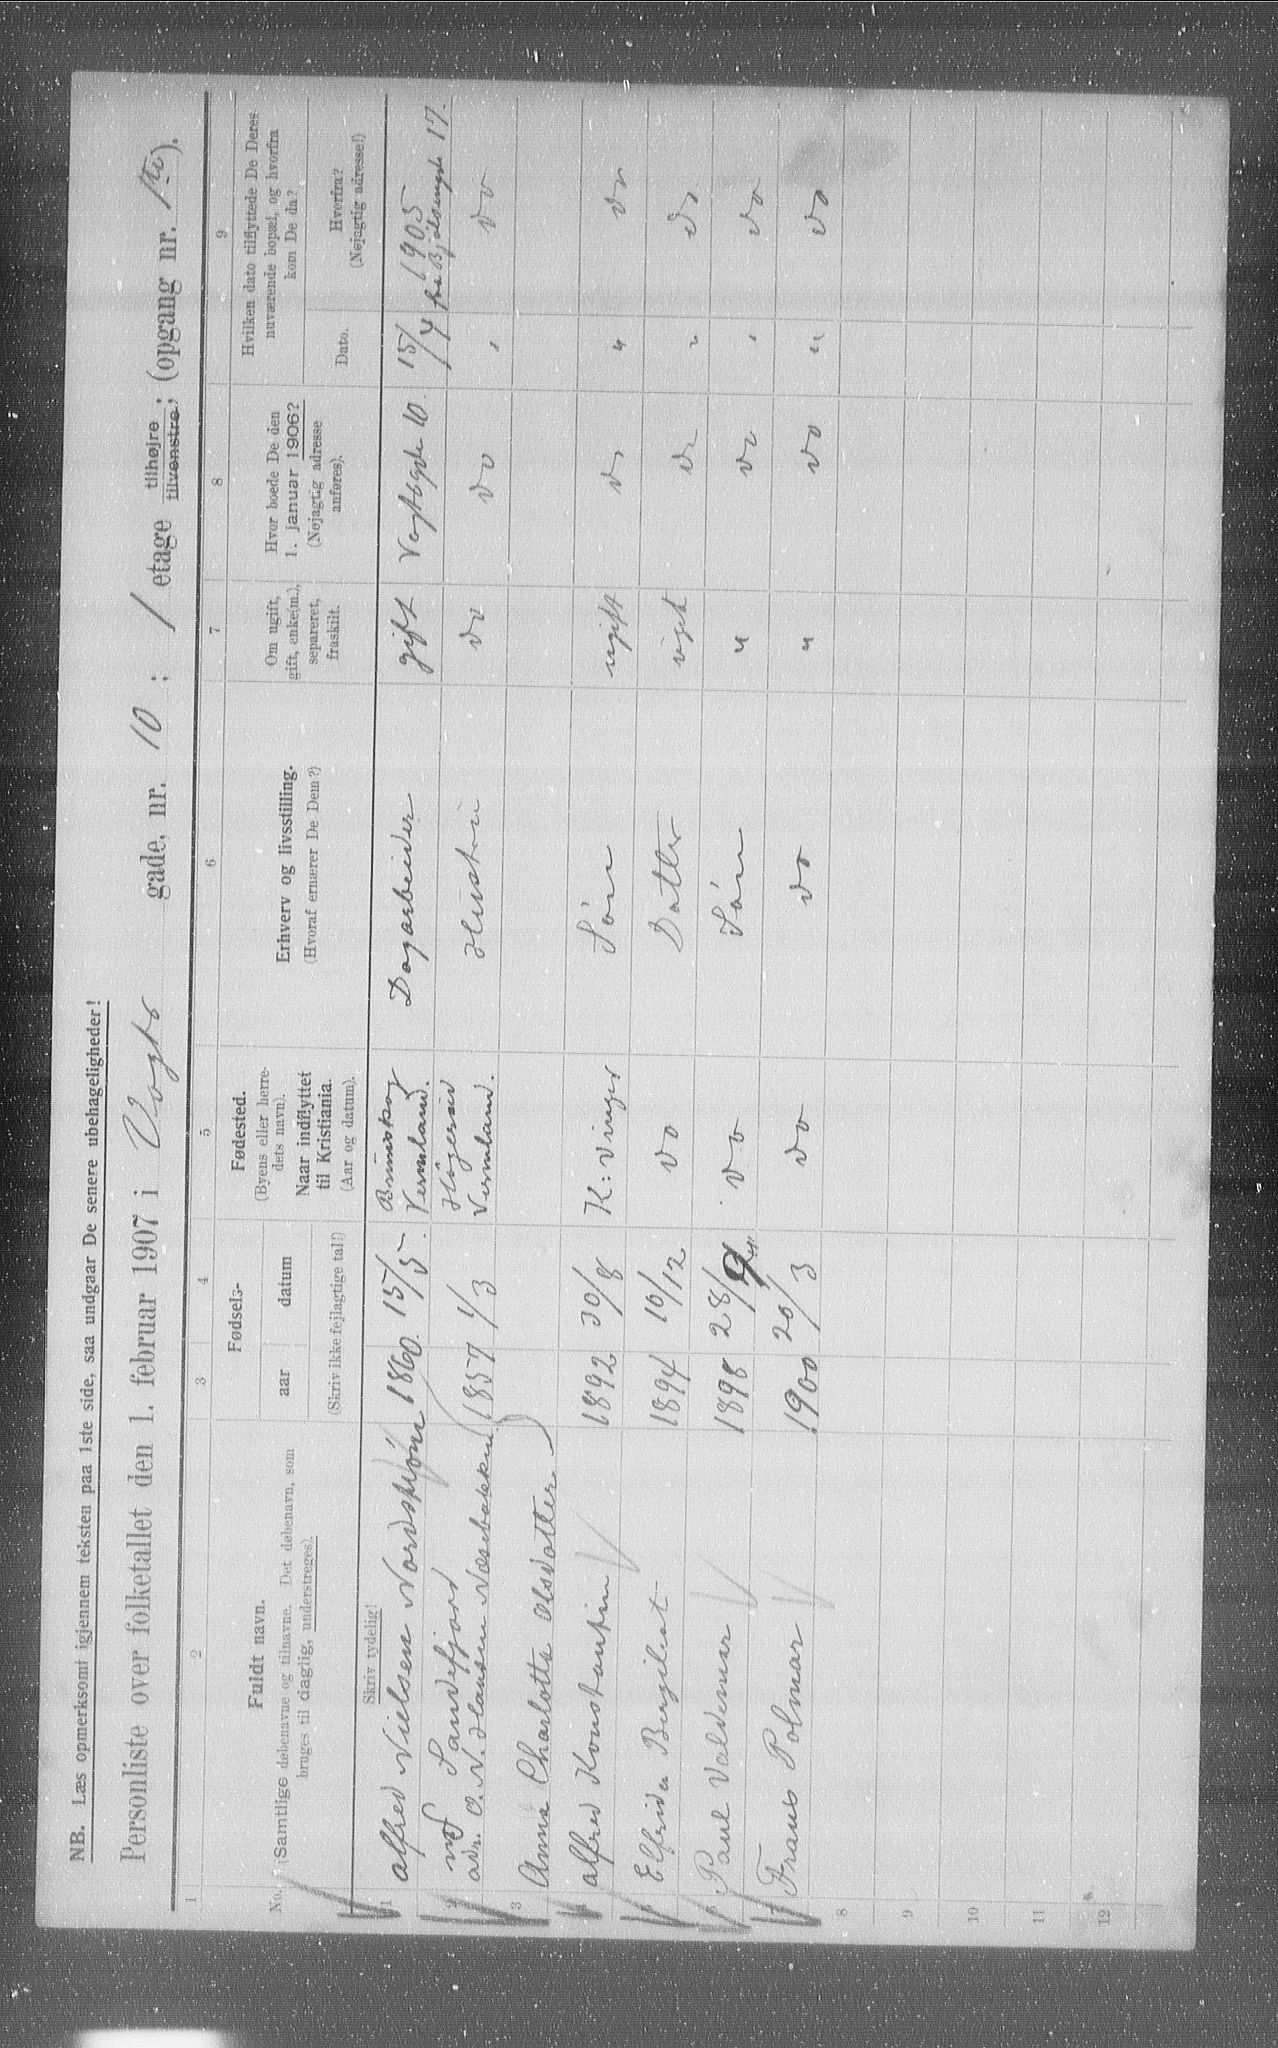 NB. Læs opmerksomt igjennem teksten paa 1ste side, saa undgaar De senere ubehageligheder!
Personliste over folketallet den 1. februar 1907 i Vogts gade, nr. 10 ; 1 etage tilhøjre tilvenstre; (opgang nr. 1ste).
1 2 3 4 5 6 7 8 9
No.
Fuldt navn.
(Samtlige døbenavne og tilnavne. Det døbenavn, som
bruges til daglig, understreges).
Skriv tydelig!
Fødsels-
aar datum
(Skriv ikke fejlagtige tal!)
Fødested.
(Byens eller herre-
dets navn).
Naar indflyttet
til Kristiania.
(Aar og datum).
Erhverv og livsstilling.
(Hvoraf ernærer De Dem?)
Om ugift,
gift, enke(m.),
separeret,
fraskilt.
Hvor boede De den
1. januar 1906?
(Nøjagtig adresse
anføres).
Hvilken dato tilflyttede De Deres
nuværende bopæl, og hvorfra
kom De da?
Dato.
Hvorfra?
(Nøjagtig adresse!)
1 Alfred Nielsen 1860. 15/5. Brunskog Vermland. Dagarbeider gift Vogtsgde 10. 15/4 1905 fra 17.
2 Sandefjord
adr. O. N. Hansen Næsebakken 1857 1/3 Vermland. Hustru do do " do
3 Anna Charlotte Olsdatter
Alfred Konstantin 1892 30/8 K: Vinger Søn ugift do " do
Elfrida 1894 10/12 do Datter ugift do " do
Paul Valdemar 1898 28/9 do Søn " do " do
Frans Polmar 1900 20/3 do do " do " do
8
9
10
11
12